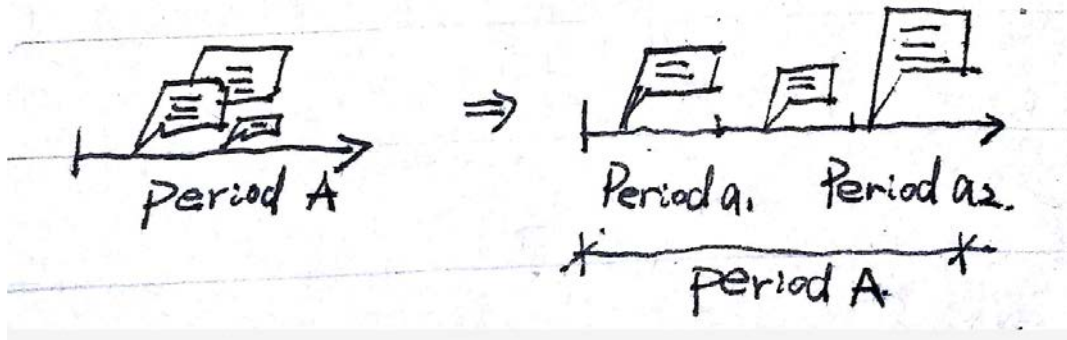 period A
⇒
Period a1
Period a2.
period A.